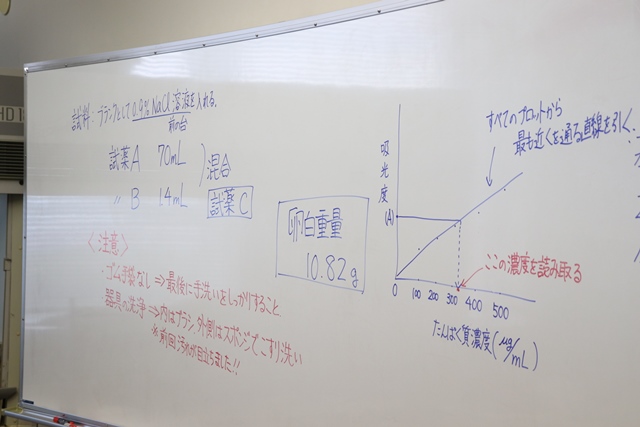 試料 ブランクとして0.9% NaCl溶液を入れる。
前の台
試薬A 70mL
〃 B 1.4mL
混合
試薬C
〈注意〉
・ゴム手袋なし⇒最後に手洗いをしっかりすること
器具の洗浄⇒内はブラシ、外側はスポンジでこすり洗い
※前回汚れが目立ちました!!
卵白重量
10.82g
すべてのプロットから
最も近くを通る直線を引く
吸光度
(A)
ここの濃度を読み取る
0 100 200 300 400 500
たんぱく質濃度(μg/mL)